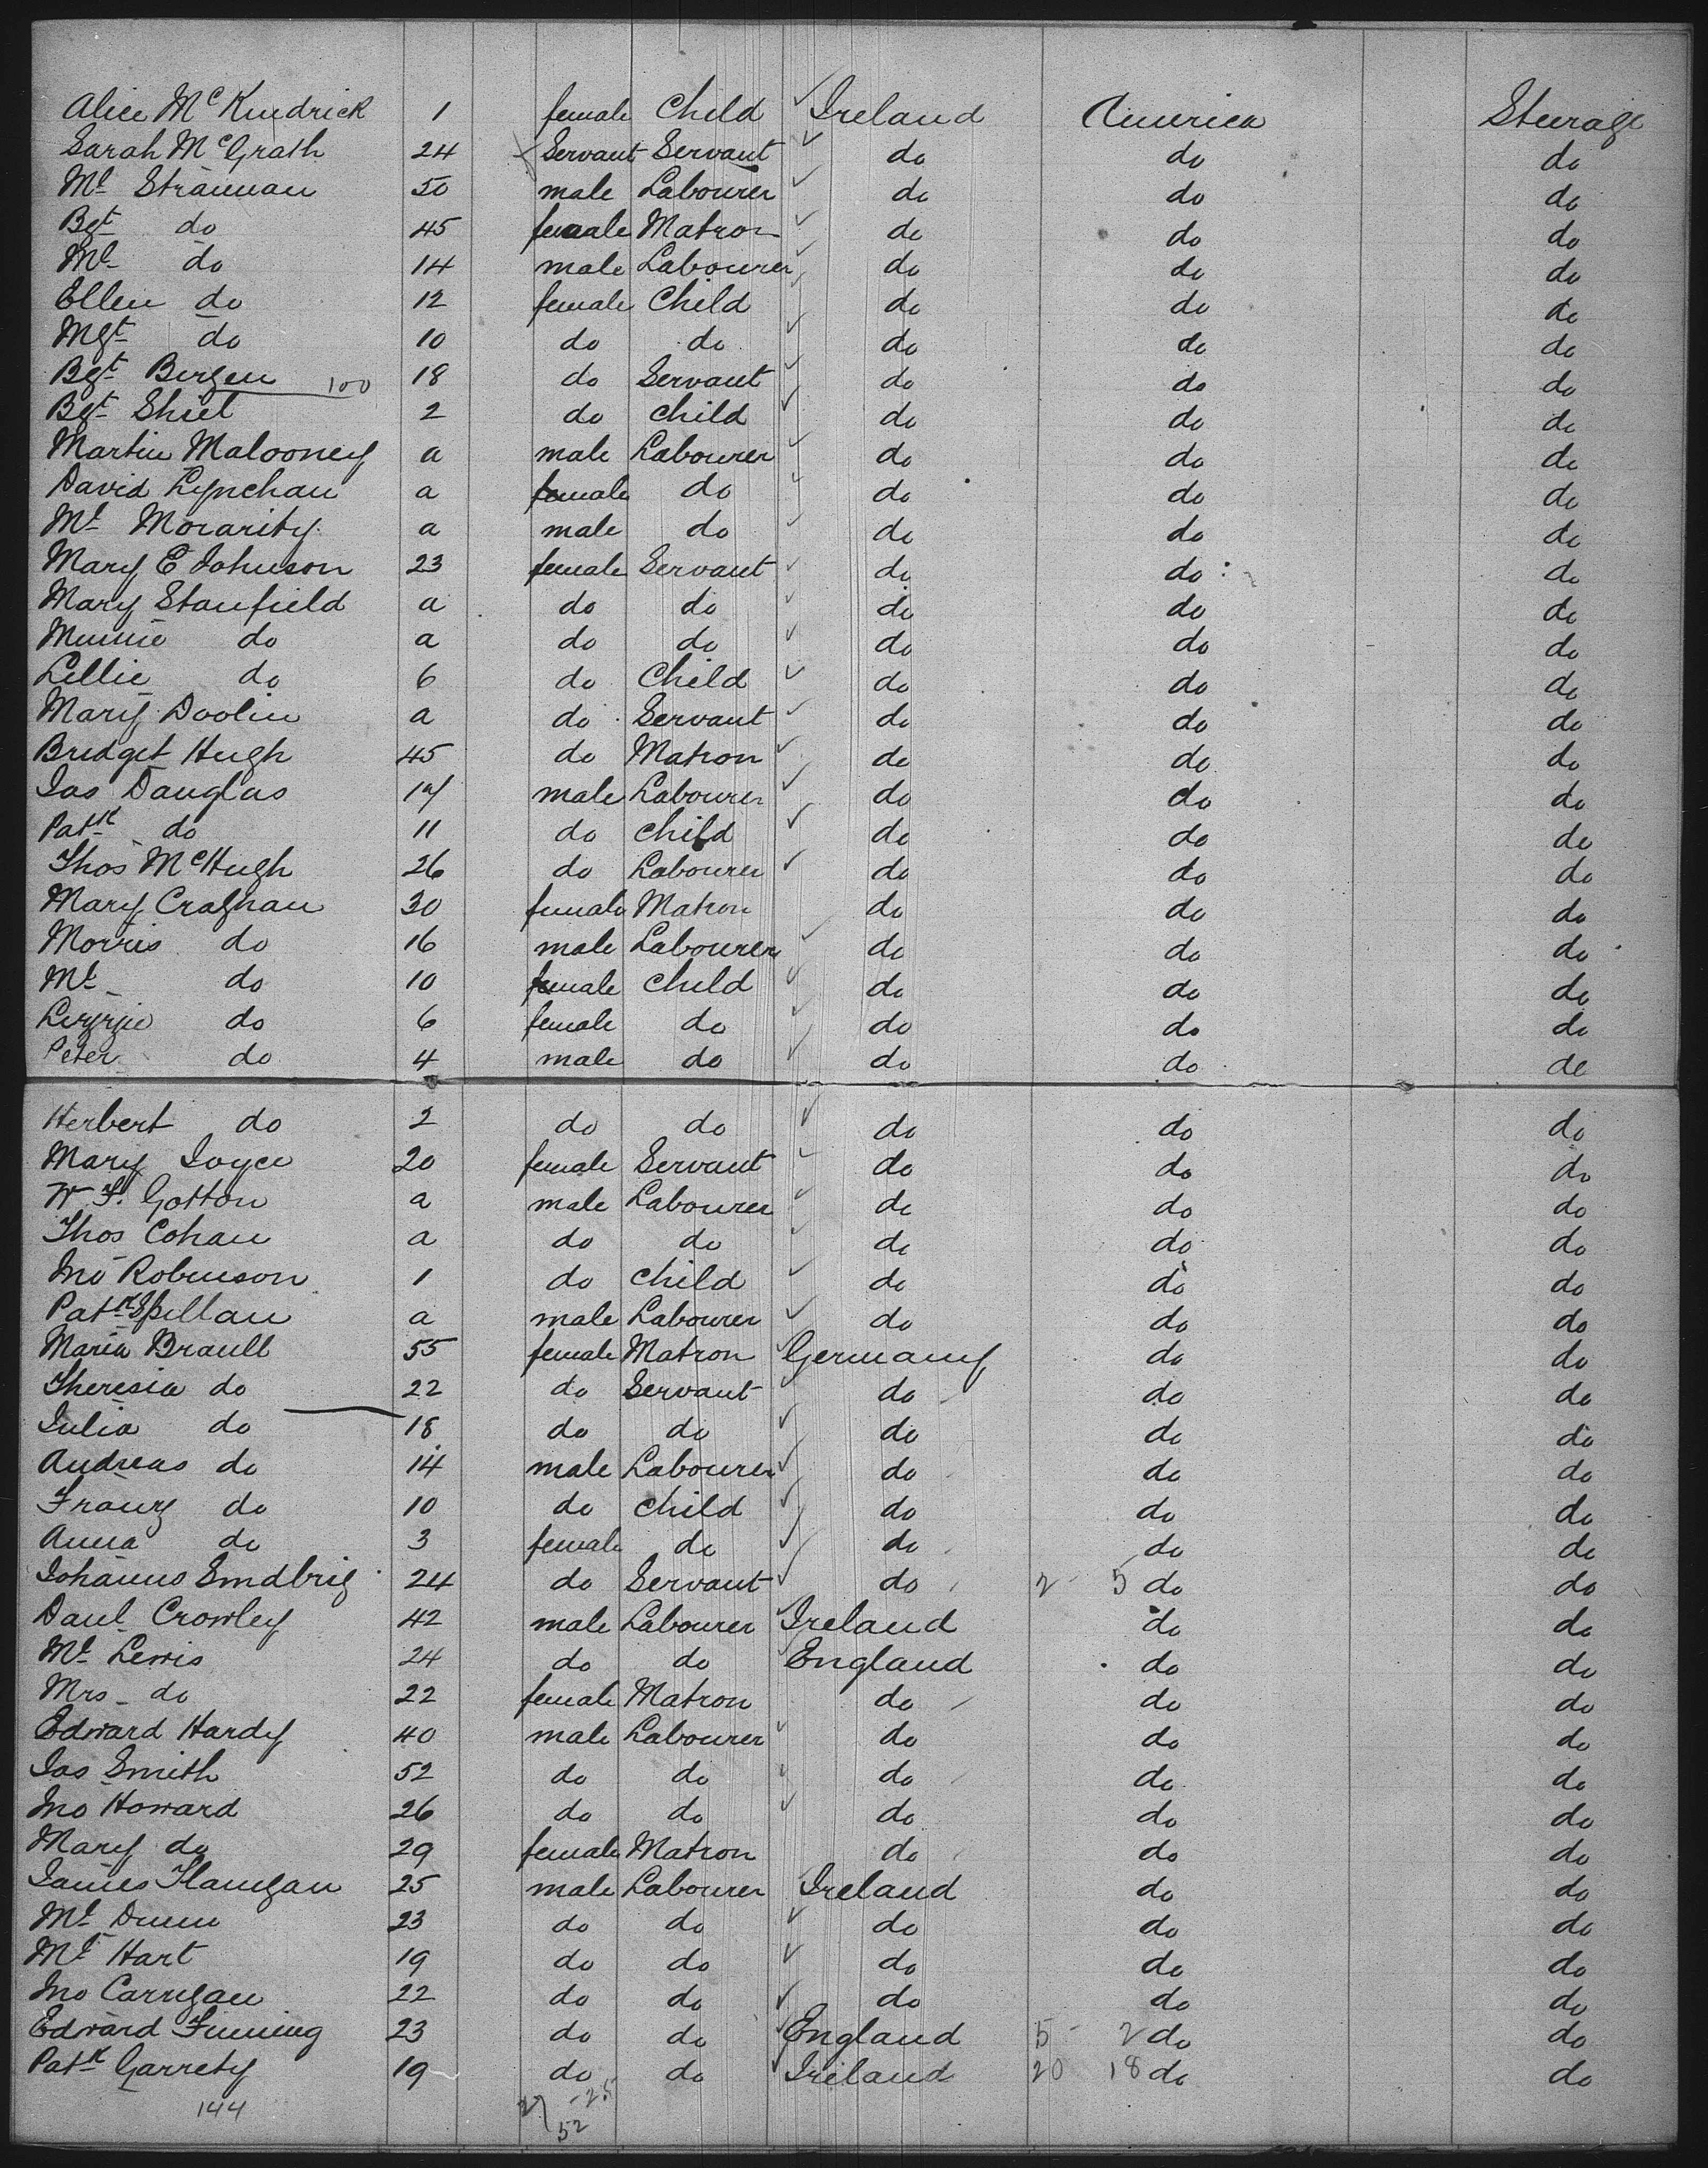 Alice McKendrick 1 female Child Ireland America Steerage
Sarah McGrath 24 Servant Servant do do do
Ml 50 male Labourer do do do
Bgt do 45 female Matron do do do
Ml do 14 male Labourer do do do
Ellen do 12 female Child do do do
Mgt do 10 do do do do do
Bgt Bergen 100 18 do Servant do do do
Bgt Shiel 2 do child do do do
Martin Malooney a male Labourer do do do
David Lynchan a female do do do do
Ml Morarity a male do do do do
Mary E Johnson 23 female Servant do do do
Mary Stanfield a do do do do do
Minnie do a do do do do do
Lillie do 6 do Child do do do
Mary Doolin a do Servant do do do
Bridget Hugh 45 do Matron do do do
Jas Douglas 14 male Labourer do do do
Patk do 11 do child do do do
Thos McHugh 26 do Labourer do do do
Mary Craghan 30 female Matron do do do
Morris do 16 male Labourer do do do
Ml do 10 female child do do do
Lizzie do 6 female do do do do
Peter do 4 male do do do do
Herbert do 2 do do do do do
Mary Joyce 20 female Servant do do do
W. F. Gotton a male Labourer do do do
Thos Cohan a do do do do do
Jno Robinson 1 do child do do do
Patk Spillan a male Labourer do do do
Maria Braull 55 female Matron Germany do do
Theresia do 22 do Servant do do do
Julia do 18 do do do do do
Andreas do 14 male Labourer do do do
Franz do 10 do child do do do
Anna do 3 female do do do do
24 do Servant do 2 5 do do
Danl Crowley 42 male Labourer Ireland do do
Ml Lewis 24 do do England do do
Mrs do 22 female Matron do do do
Edward Hardy 40 male Labourer do do do
Jas Smith 52 do do do do do
Jno Howard 26 do do do do do
Mary do 29 female Matron do do do
James Flanigan 25 male Labourer Ireland do do
Ml Dunn 23 do do do do do
Ml Hart 19 do do do do do
Jno Carrigan 22 do do do do do
Edward Finning 23 do do England 5 - 2 do do
Patk Garrety 19 do do Ireland 20 18 do do
144 27 - 25
52